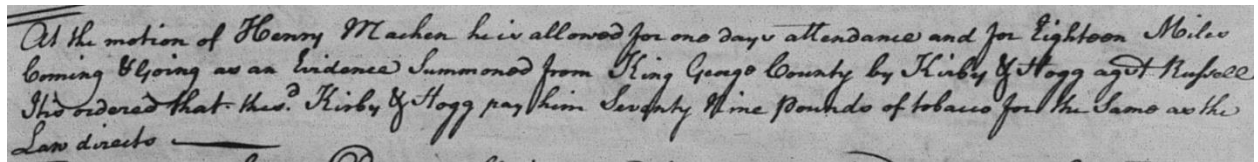 At the motion of Henry Machen he is allowed for one days attendance and for Eighteen Miles
Coming & Going as an Evidence Summoned from King George County by Kirby & Hogg agst Russell
Itis ordered that the sd. Kirby & Hogg pay him Seventy Nine Pounds of tobacco for the Same as the
Law directs